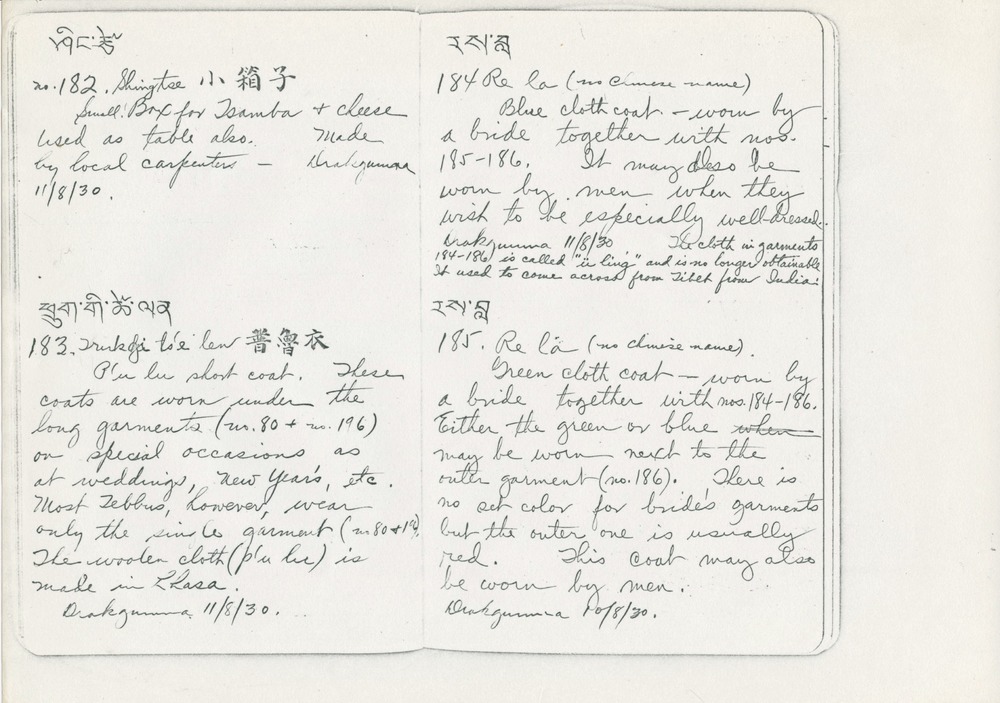 ཤིང་རྩེ
no. 182. Shingtse 小箱子
Small Box for Tsamba + cheese
used as table also. Made
by local carpenters — Drakgumna
11/8/30.
ཕྲུག་གི་ཚེ་ལན
183. Trukgi ts'e len 普魯衣
P'u lu short coat. These
coats are worn under the
long garments (no. 80 + no. 196)
on special occasions as
at weddings, New Year's, etc.
Most Tebbus, however, wear
only the single garment (no 80 + 196)
The woolen cloth (p'u lu) is
made in Lhasa.
Drakgumna 11/8/30.
རས་ལྭ
184 Re la (no Chinese name)
Blue cloth coat — worn by
a bride together with nos.
185-186. It may also be
worn by men when they
wish to be especially well-dressed.
Drakgumna 11/8/30 The cloth in garments
184-186 is called "ü ling" and is no longer obtainable
It used to come across from Tibet from India.
རས་ལྭ
185. Re la (no chinese name).
Green cloth coat — worn by
a bride together with nos. 184-186.
Either the green or blue when
may be worn next to the
outer garment (no. 186). There is
no set color for bride's garments
but the outer one is usually
red. This coat may also
be worn by men.
Drakgumna 10/8/30.